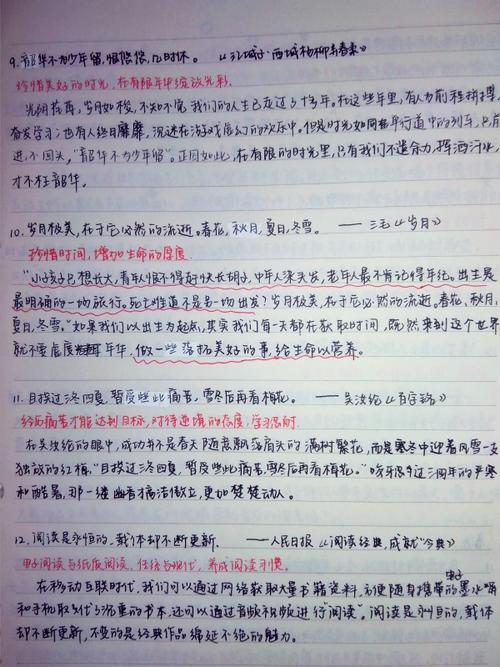 9.韶华不为少年留,恨悠悠,几时休。 《江城子·西城杨柳弄春柔》
珍惜美好的时光,在有限年华绽放光彩.
光阴荏苒,岁月如梭,不知不觉我们的人生已走过了十多年。在这些年里,有人为前程拼搏,
奋发学习;也有人终日靡靡,沉迷在游戏虚幻的欢乐中。但是时光如同在平行道中的列车,只前
进,不回头,“韶华不为少年留”。正因如此,在有限的时光里,只有我们不遗余力,挥洒汗水,
才不枉韶华。
10.岁月极美,在于它必然的流逝。春花,秋月,夏日,冬雪。 ——三毛《岁月》
珍惜时间,增加生命的厚度.
“小孩子只想长大,青年人恨不得好快长胡子,中年人染头发,老年人最不肯记得年纪。出生是
最明确的一场旅行。死亡难道不是另一场出发?岁月极美,在于它必然的流逝,春花,秋月,
夏日,冬雪。”如果我们以出生为起点,其实我们每一天都在获取时间,既然来到这个世界
就不要虚度年华,做一些发扬美好的事,给生命以营养。
11.目挨过三冬四夏,暂受些此痛苦,雪尽后再看梅花。 ——吴汝纶《百字铭》
经历痛苦才能达到目标,对待逆境的态度,学习忍耐.
在吴汝纶的眼中,成功并不是春天随意飘落肩头的满树繁花,而是寒冬中迎着风雪一支
独放的红梅,“目挨过三冬四夏,暂受些此痛苦,雪尽后再看梅花。”咬牙忍受过三两年的严寒
和酷暑,那一缕幽香孤洁傲立,更加楚楚动人。
12.阅读是永恒的,载体却不断更新. ——人民日报《阅读经典,成就“今典”》
电子阅读与纸质阅读,传统与现代,养成阅读习惯.
在移动互联时代,我们可以通过网络获取大量书籍资料,方便随身携带的电子墨水屏
和手机取代了沉重的书本,还可以通过音频和视频进行“阅读”。阅读是永恒的,载体
却不断更新,不变的是经典作品绵延不绝的魅力。